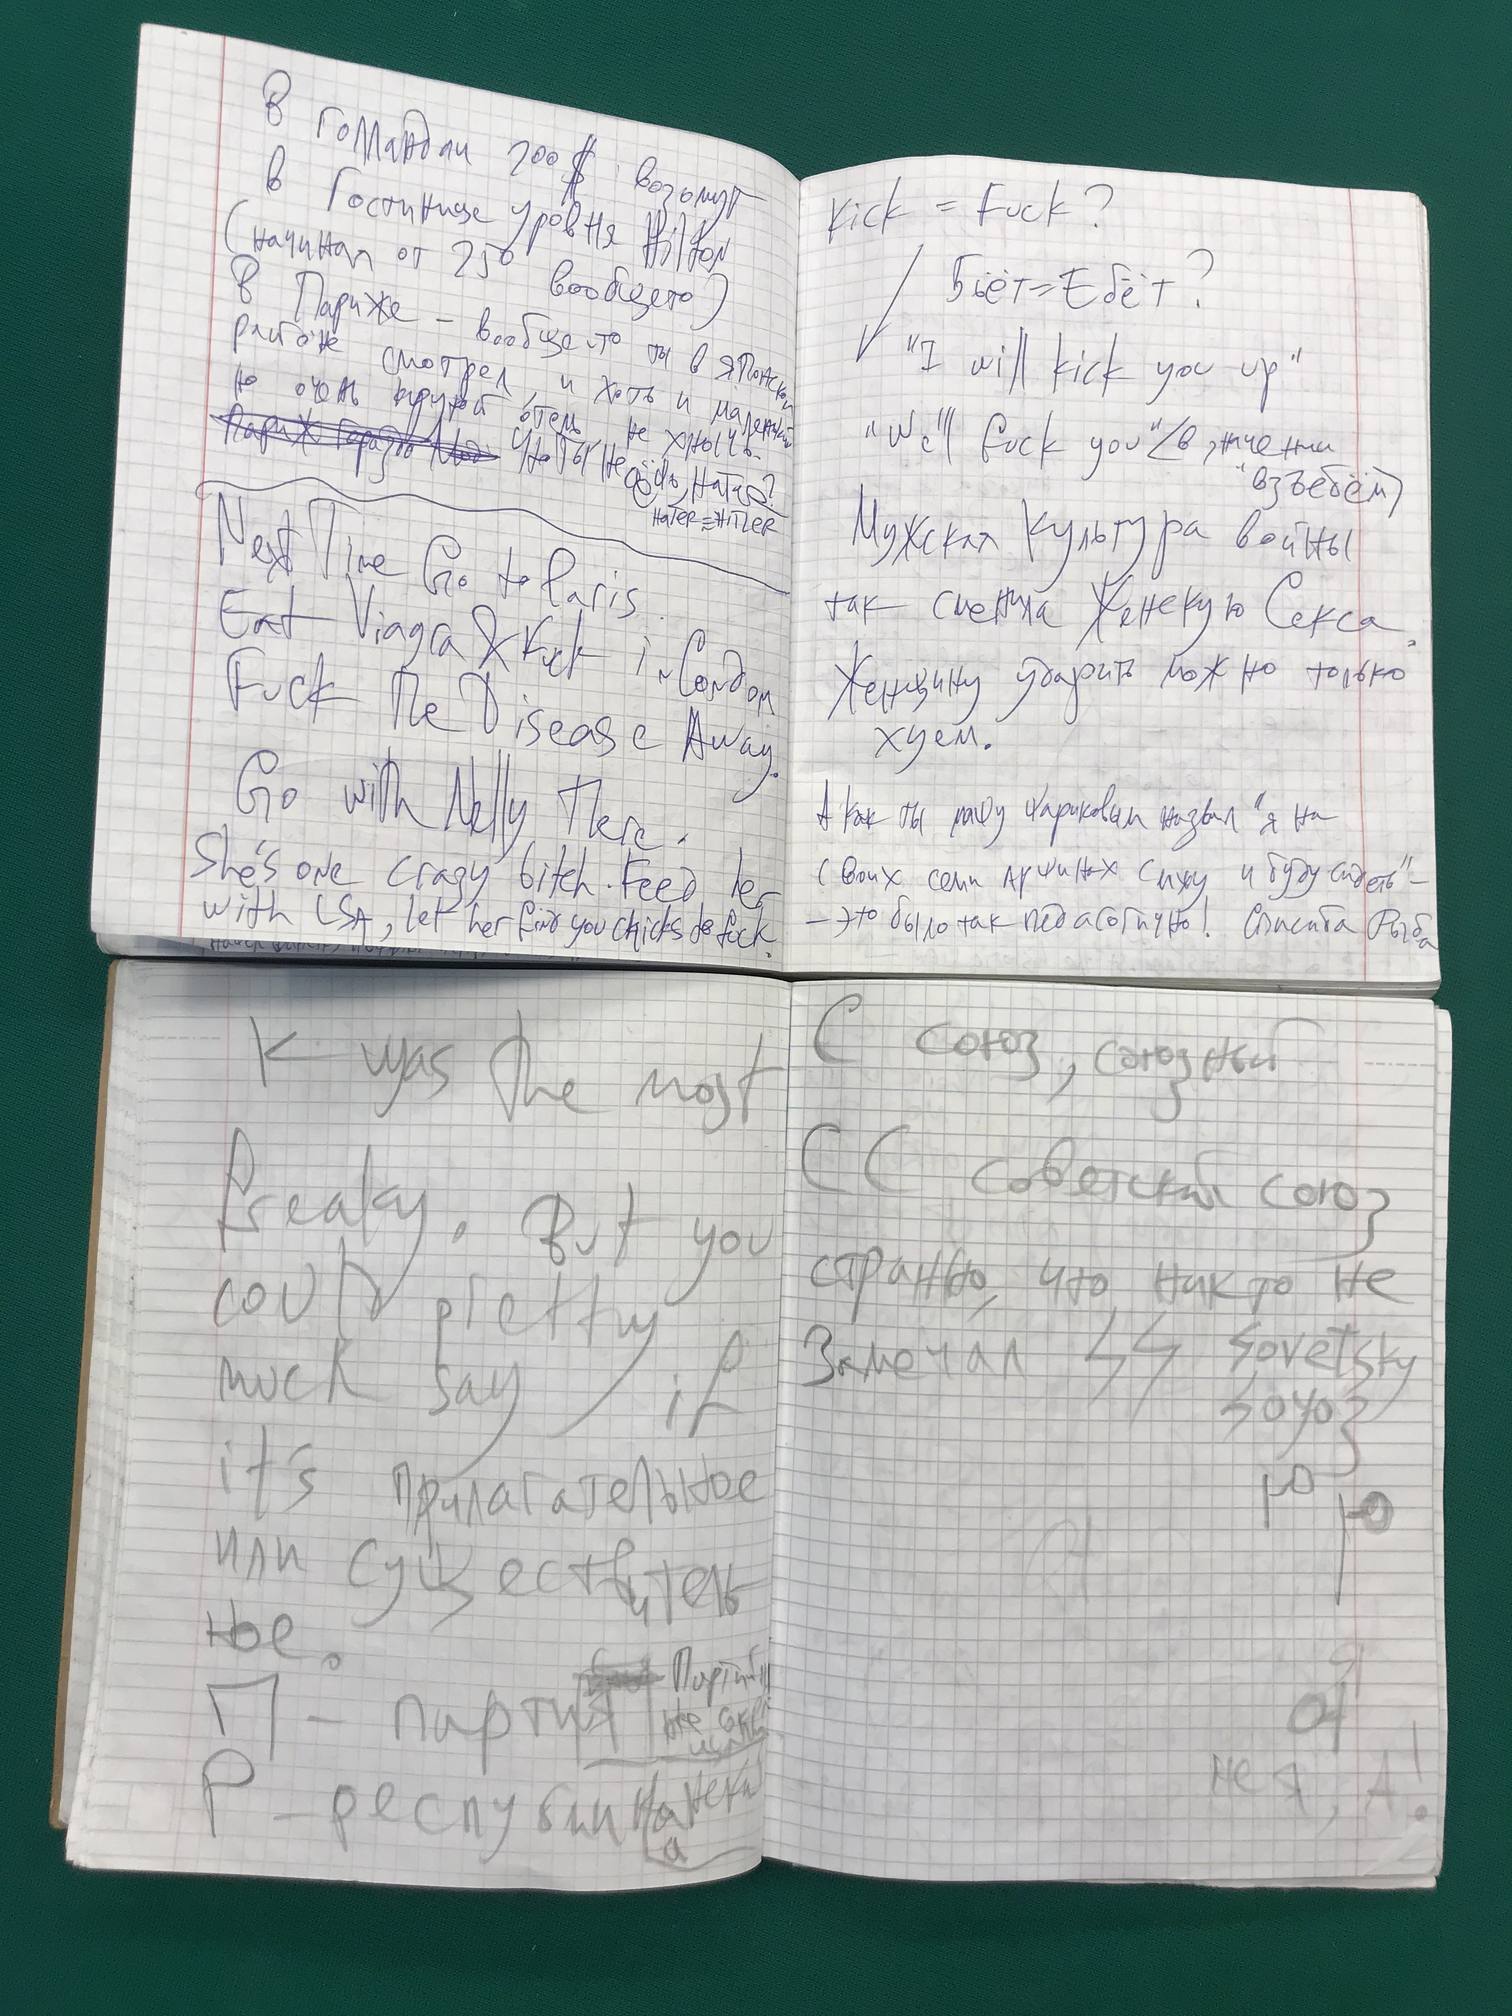 В Голландии 200$ возьмут
в Гостинице уровня Hilton
(начиная от 250 вообщето)
В Париже - вообще-то ты в японском
районе смотрел, и хоть и маленький
но очень крутой отель не хнычь.
Что ты не
HATER = HITLER
Next Time Go to Paris
Eat Viagra & Kick in Condom
Fuck The Disease Away.
Go with Nelly There.
She's one crazy bitch. Feed her
with LSA, let her find you chicks to fuck.
Kick = Fuck?
Бьёт = Ебёт?
"I will kick you up"
"We'll fuck you" (в значении
"взъебём")
Мужская Культура войны
так сменила Женскую Секса.
Женщину ударить можно только
хуем.
А как ты назвал "я на
своих семи аршинах сижу и буду сидеть" -
- это было так педагогично! Спасиба Рыба
K was the most
freaky. But you
could pretty
much say if
it's прилагательное
или существитель
ное.
П - партия
Р - республика
С союз, союзный
СС советский союз
странно, что никто не
Замечал ϟϟ Sovetsky
Soyoz
Ю
Ю
Я
не я, А!